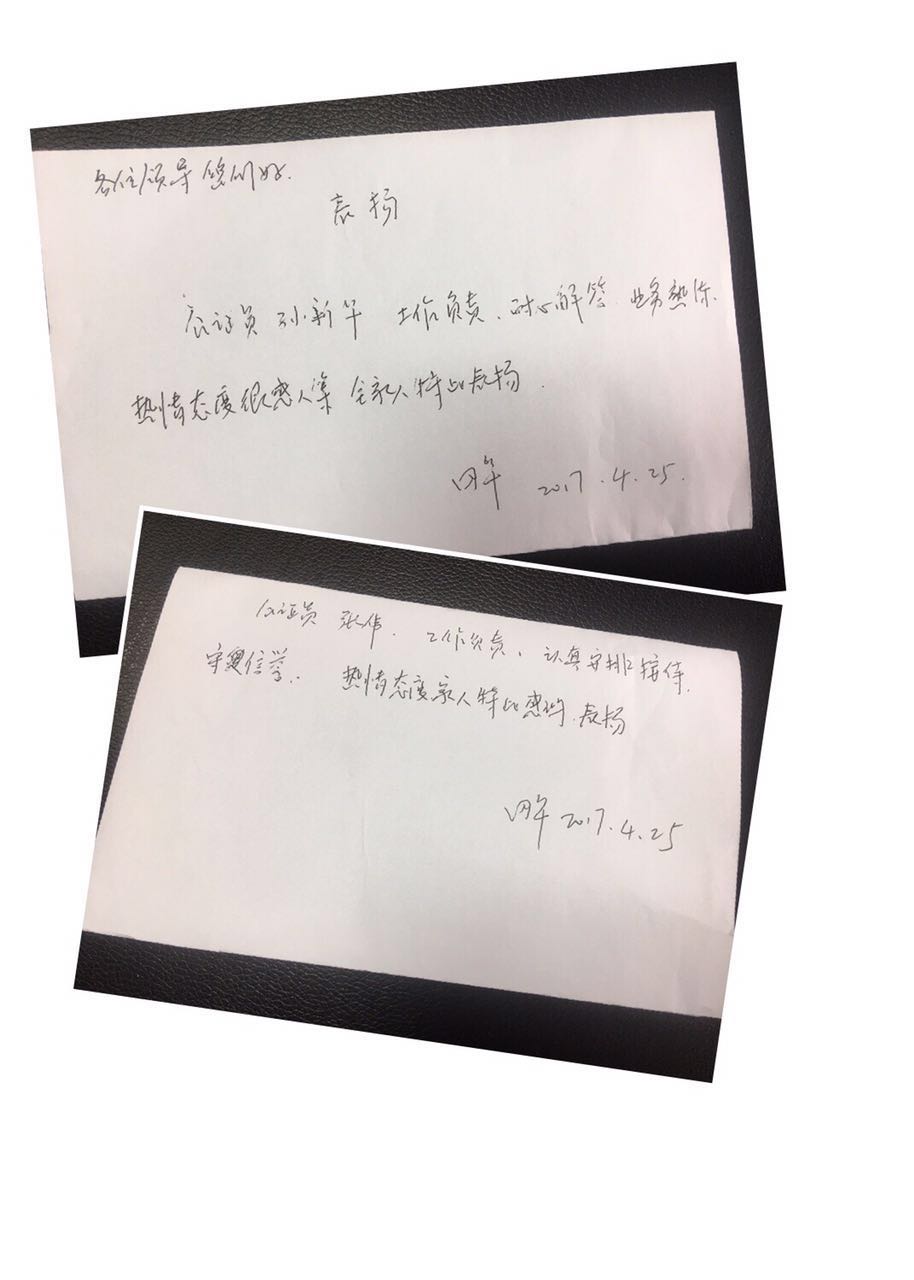 各位领导您们好.
表扬
公证员 孙新华 工作负责、耐心解答、业务熟练、
热情态度很感人 全家人特此表扬.
2017.4.25.
公证员 张伟、工作负责、认真安排接待.
守信誉. 热情态度家人特此感谢.表扬
2017.4.25